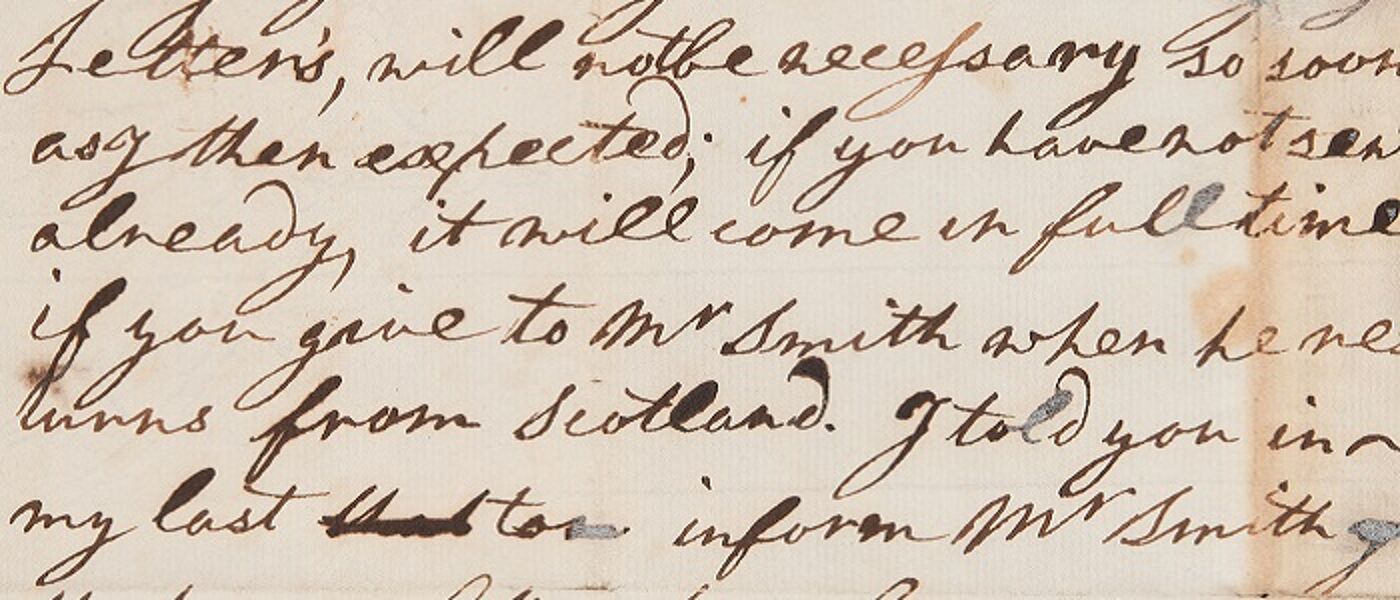 Letter's, will not be necessary so soon
as I then expected; if you have not sen
already, it will come in full time
if you give to Mr Smith when he re
turns from Scotland. I told you in
my last that to inform Mr Smith